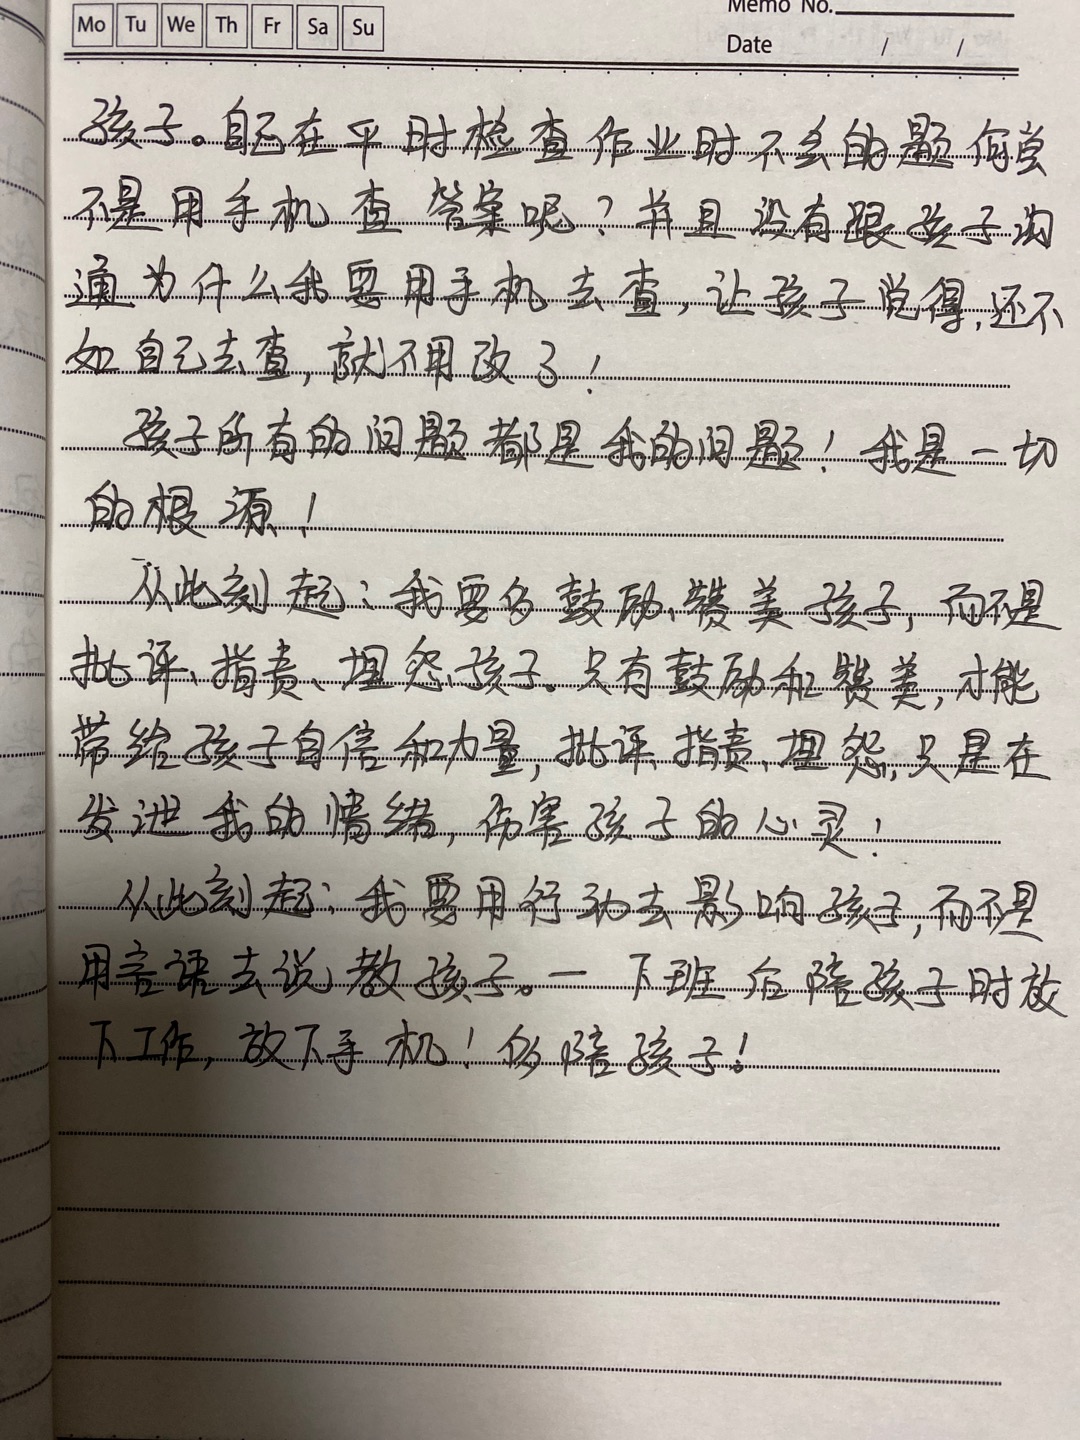 Mo Tu We Th Fr Sa Su
Memo No.
Date / /
孩子。自己在平时检查作业时不会的题何尝
不是用手机查答案呢？并且没有跟孩子沟
通为什么我要用手机去查，让孩子觉得，还不
如自己去查，就不用改了！
孩子所有的问题都是我的问题！我是一切
的根源！
从此刻起：我要多鼓励、赞美孩子，而不是
批评、指责、埋怨孩子。只有鼓励和赞美，才能
带给孩子自信和力量，批评、指责、埋怨，只是在
发泄我的情绪，伤害孩子的心灵！
从此刻起：我要用行动去影响孩子，而不是
用言语去说教孩子。一下班后陪孩子时放
下工作，放下手机！多陪孩子！